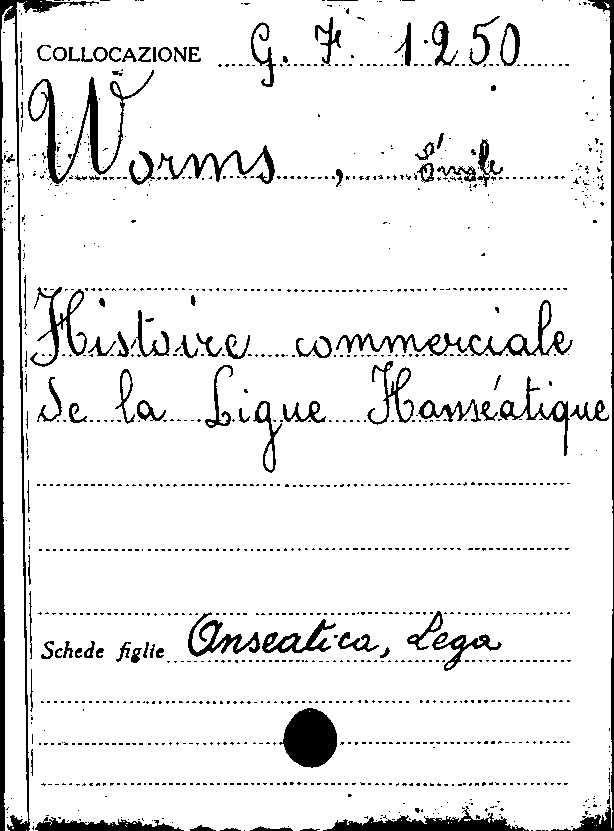 COLLOCAZIONE G. F. 1.250
Worms, Émile
Histoire commerciale
de la Ligue Hanséatique
Schede figlie Anseatica, Lega